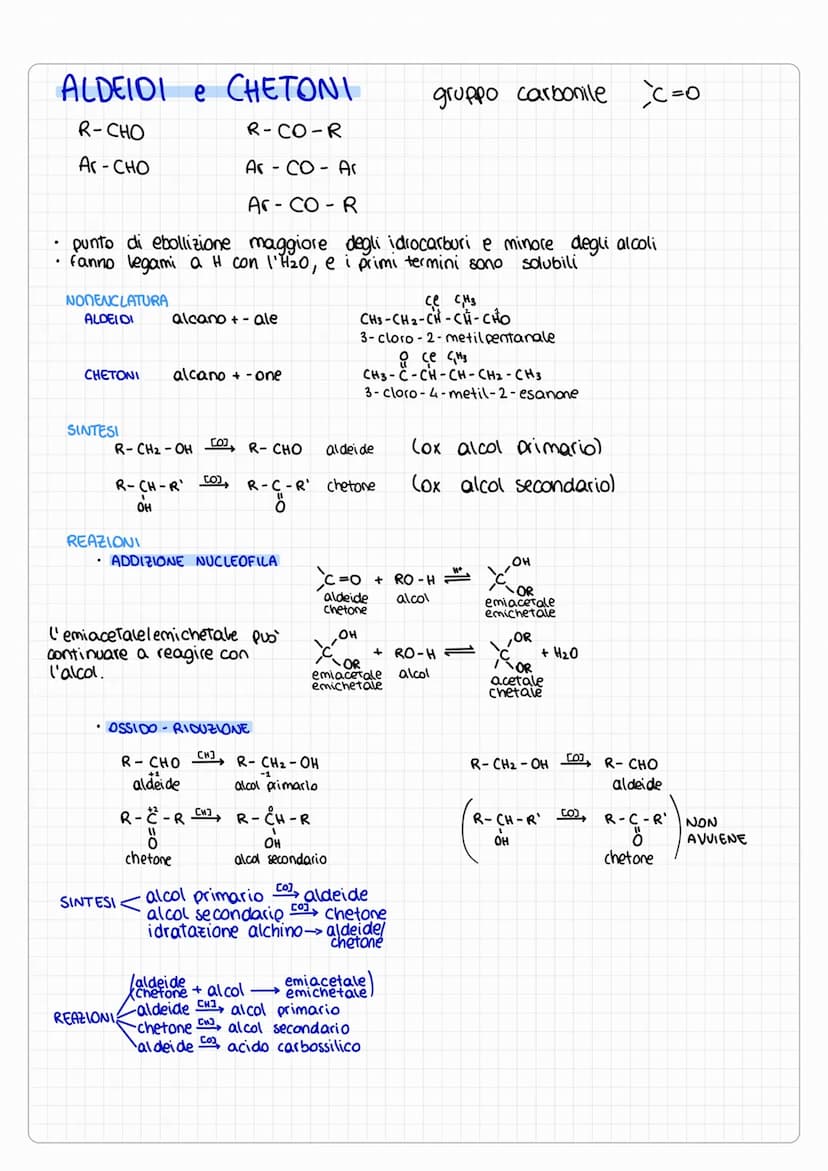 ALDEIDI e CHETONI gruppo carbonile >C=O
R-CHO R-CO-R
Ar-CHO Ar-CO-Ar
Ar-CO-R
· punto di ebollizione maggiore degli idrocarburi e minore degli alcoli
· fanno legami a H con l'H2O, e i primi termini sono solubili
NOMENCLATURA
Cl CH3
ALDEIDI alcano + -ale CH3-CH2-CH-CH-CHO
3-cloro-2-metilpentanale
O Cl CH3
CHETONI alcano + -one CH3-C-CH-CH-CH2-CH3
3-cloro-4-metil-2-esanone
SINTESI
R-CH2-OH [O]→ R-CHO aldeide (ox alcol primario)
R-CH-R' [O]→ R-C-R' chetone (ox alcol secondario)
OH O
REAZIONI
· ADDIZIONE NUCLEOFILA
>C=O + RO-H H+⇌ C OH OR
aldeide alcol emiacetale
chetone emichetale
l'emiacetale/emichetale può
continuare a reagire con
l'alcol.
C OH OR + RO-H ⇌ C OR OR + H2O
emiacetale alcol acetale
emichetale chetale
· OSSIDO-RIDUZIONE
R-CHO [H]→ R-CH2-OH R-CH2-OH [O]→ R-CHO
+1 -1
aldeide alcol primario aldeide
+2 0
R-C-R [H]→ R-CH-R (R-CH-R' [O]→ R-C-R') NON
O OH OH O AVVIENE
chetone alcol secondario chetone
SINTESI < alcol primario [O]→ aldeide
alcol secondario [O]→ chetone
idratazione alchino → aldeide/
chetone
(aldeide emiacetale)
(chetone + alcol → emichetale)
REAZIONI aldeide [H]→ alcol primario
chetone [H]→ alcol secondario
aldeide [O]→ acido carbossilico